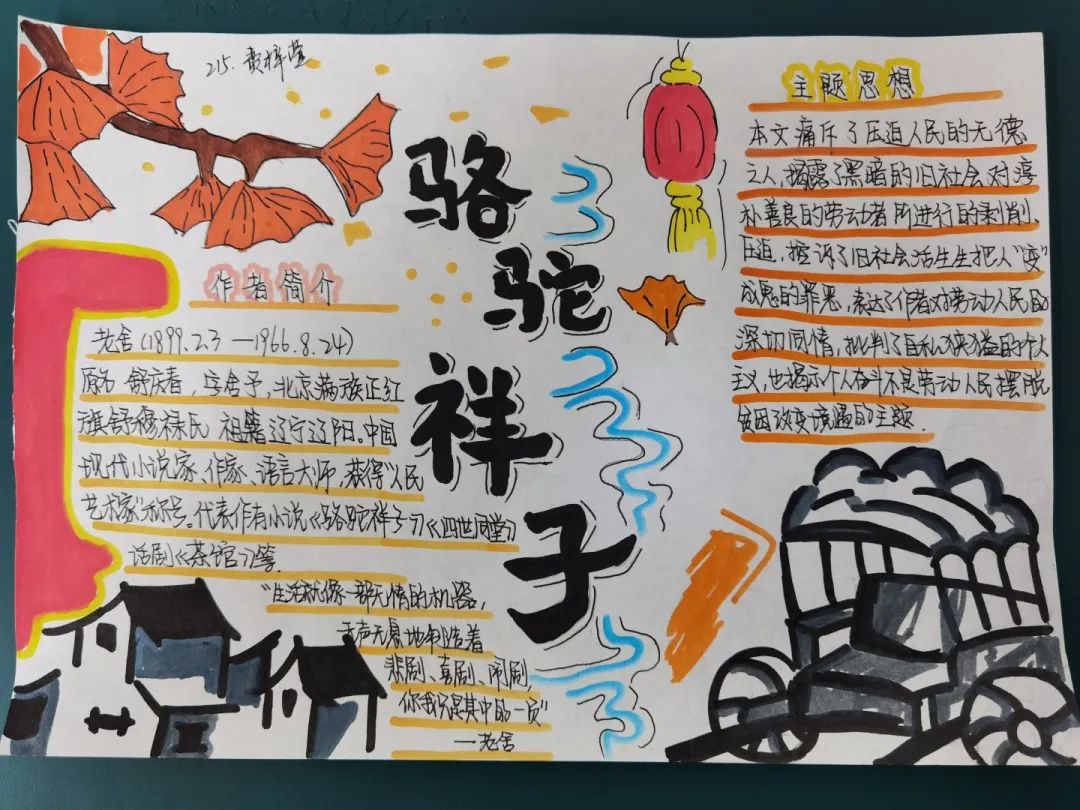 215.
骆驼祥子
作者简介
老舍(1899.2.3—1966.8.24)
原名 舒庆春, 字舍予,北京满族正红
旗舒穆禄氏 祖籍辽宁辽阳。中国
现代小说家、作家、语言大师,获得“人民
艺术家”称号。代表作有小说《骆驼祥子》《四世同堂》
话剧《茶馆》等.
“生活就像一部无情的机器,
无声无息地制造着
悲剧、喜剧、闹剧,
你我只是其中的一页”
—老舍
主题思想
本文痛斥了压迫人民的无德
之人,揭露了黑暗的旧社会对淳
朴善良的劳动者所进行的剥削、
压迫,控诉了旧社会活生生把人“变”
成鬼的罪恶,表达了作者对劳动人民的
深切同情,批判了自私狭隘的个人
主义,也揭示个人奋斗不是劳动人民摆脱
贫困改变境遇的主题.